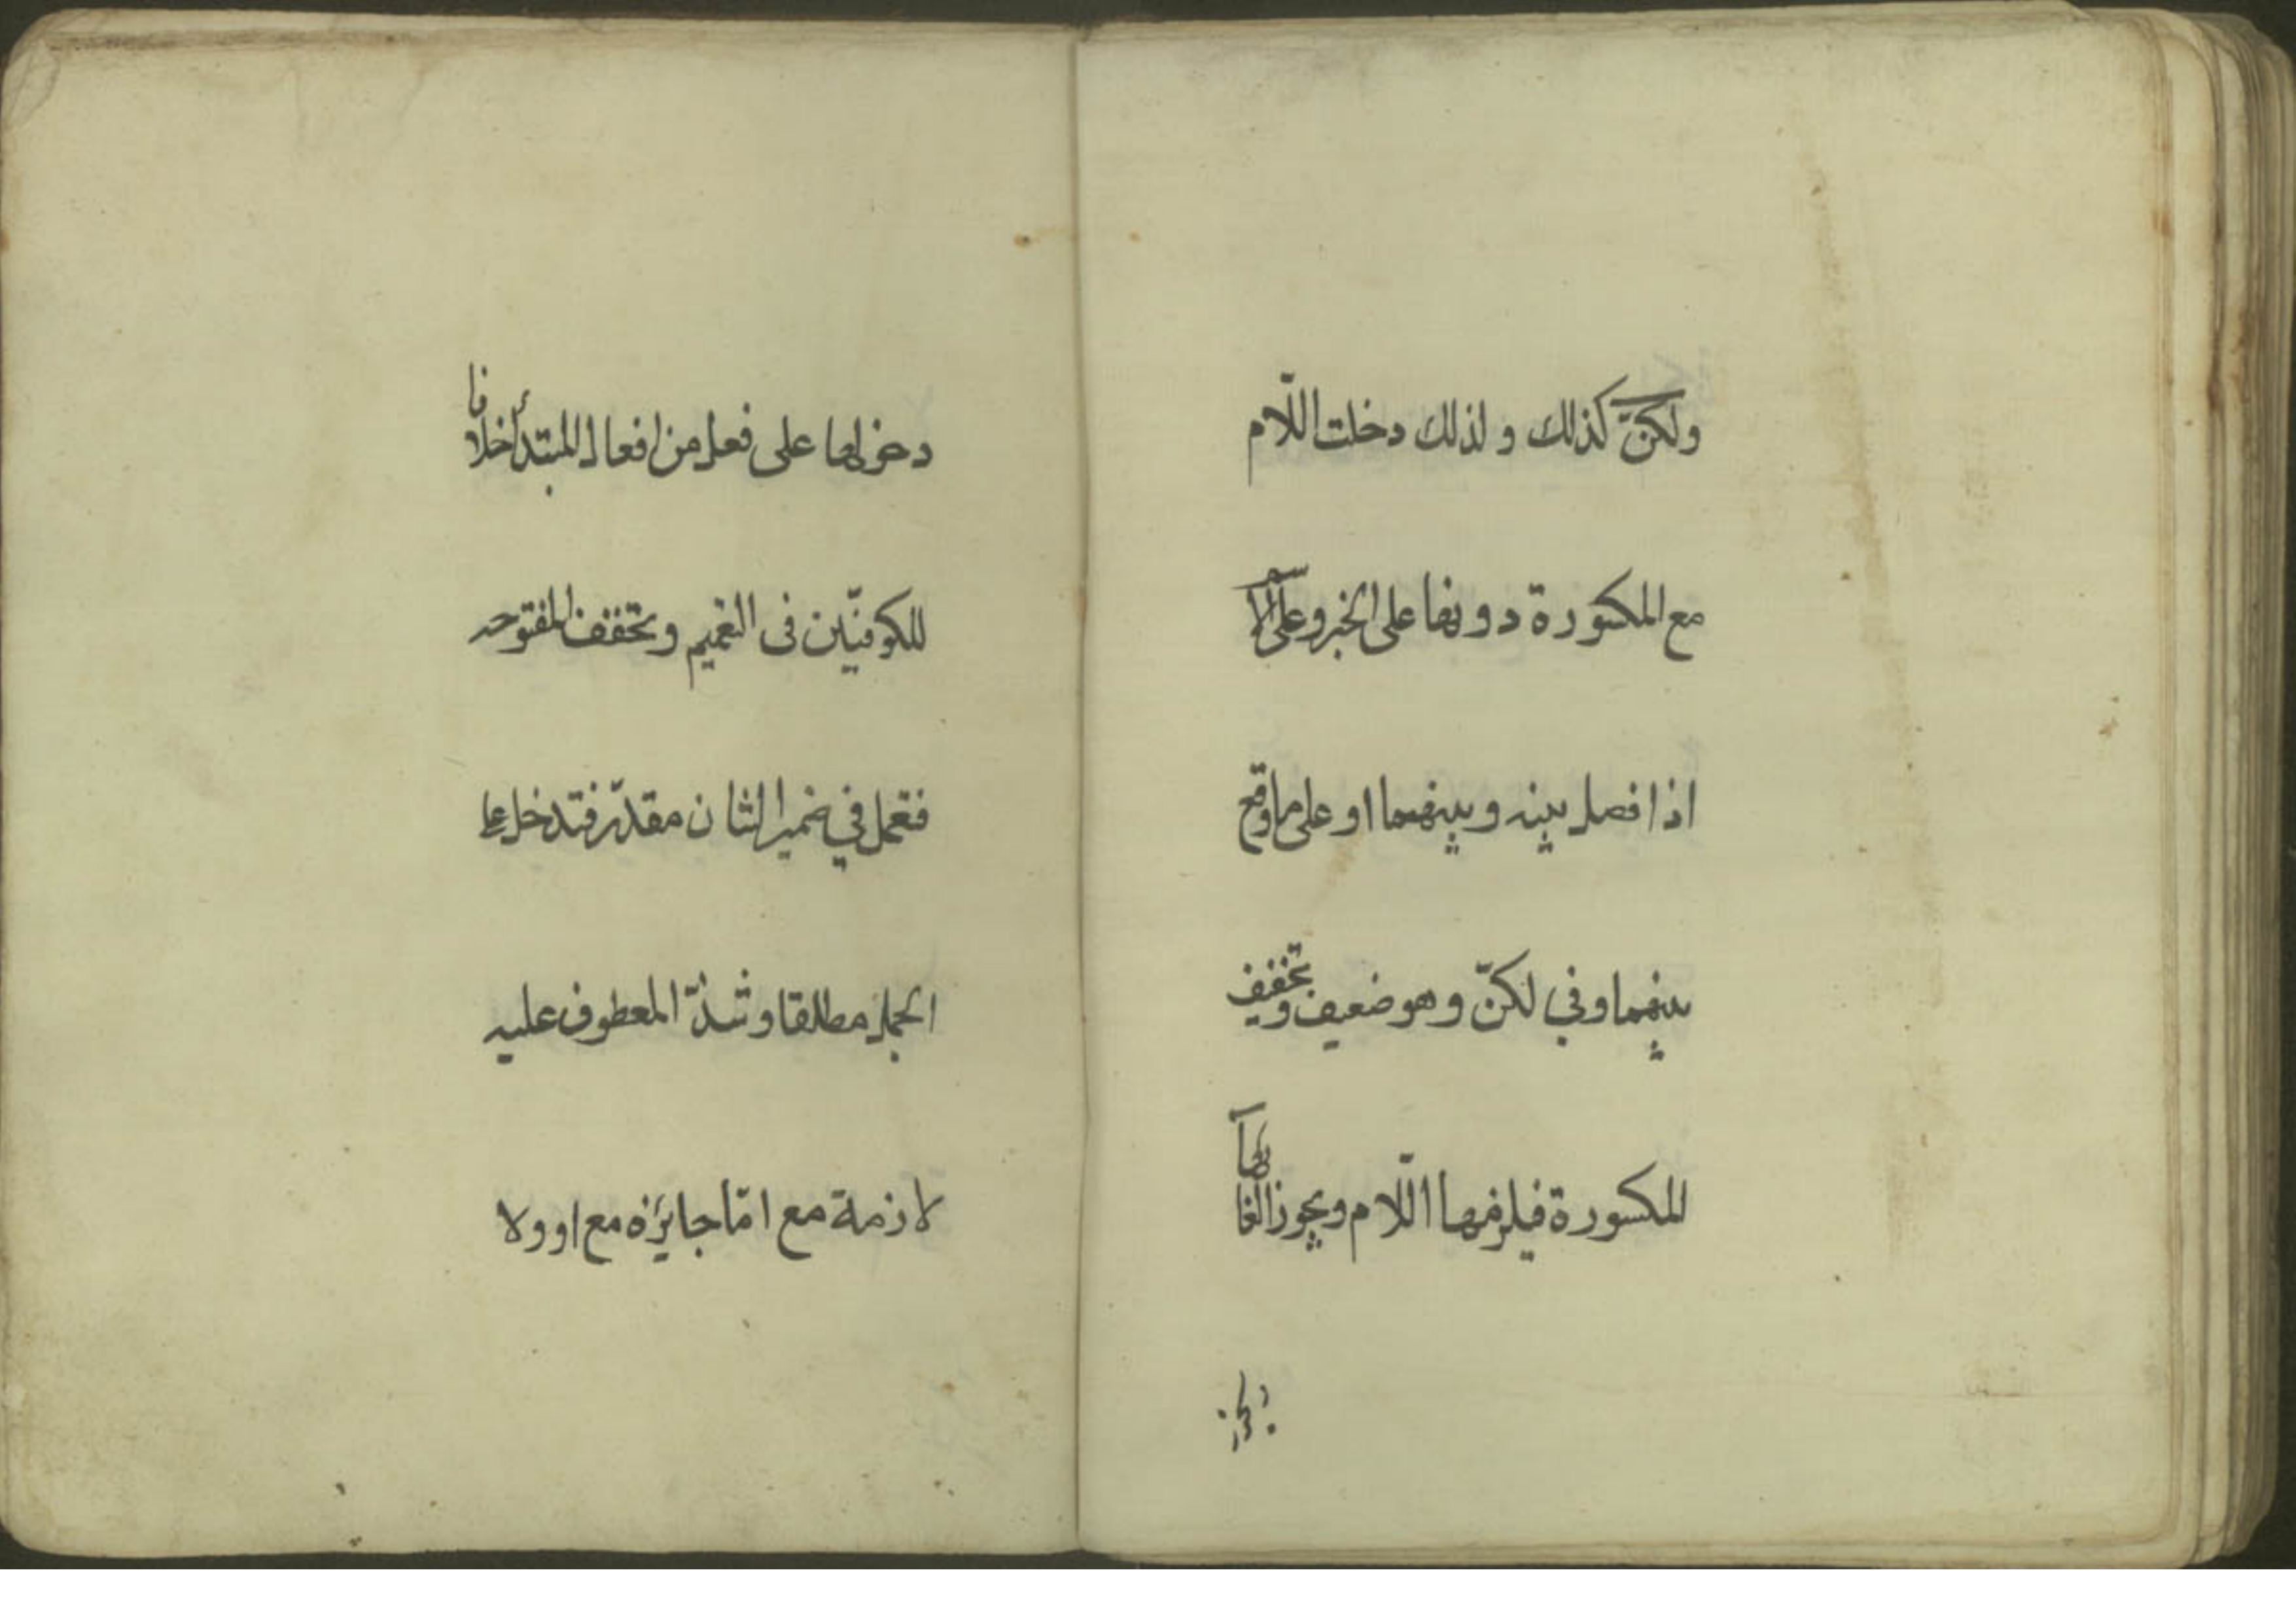 ولكنّ كذلك ولذلك دخلت اللّام
مع المكسورة دونها على الخبر وعلى الاسم
اذا فصل بينه وبينهما او على ما وقع
بينهما وفي لكنّ وهو ضعيف وتخفف
المكسورة فيلزمها اللّام ويجوز الغائها
يجوز
دخولها على فعل من افعال المبتدأ خلافا
للكوفيّين فى التعميم وتخفف المفتوحه
فتعمل في ضمير الشان مقدّر فتدخل على
الجمل مطلقا وشذّ المعطوف عليه
لازمة مع امّا جايزه مع او ولا